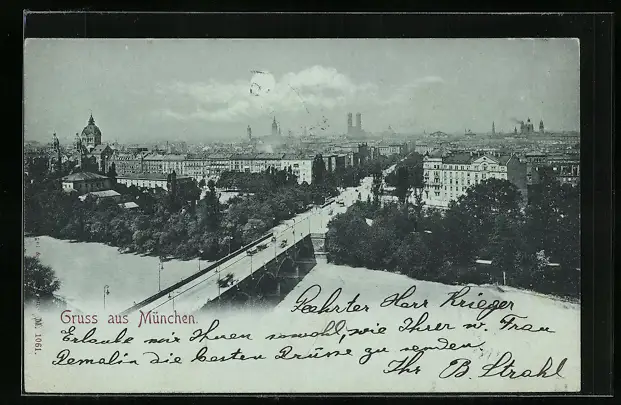 Gruss aus München.
Geehrter Herr Krieger
Erlaube mir Ihnen sowohl, wie Ihrer w. Frau
Gemalin die besten Grüsse zu senden.
Ihr B. Strohl
N. 1061.